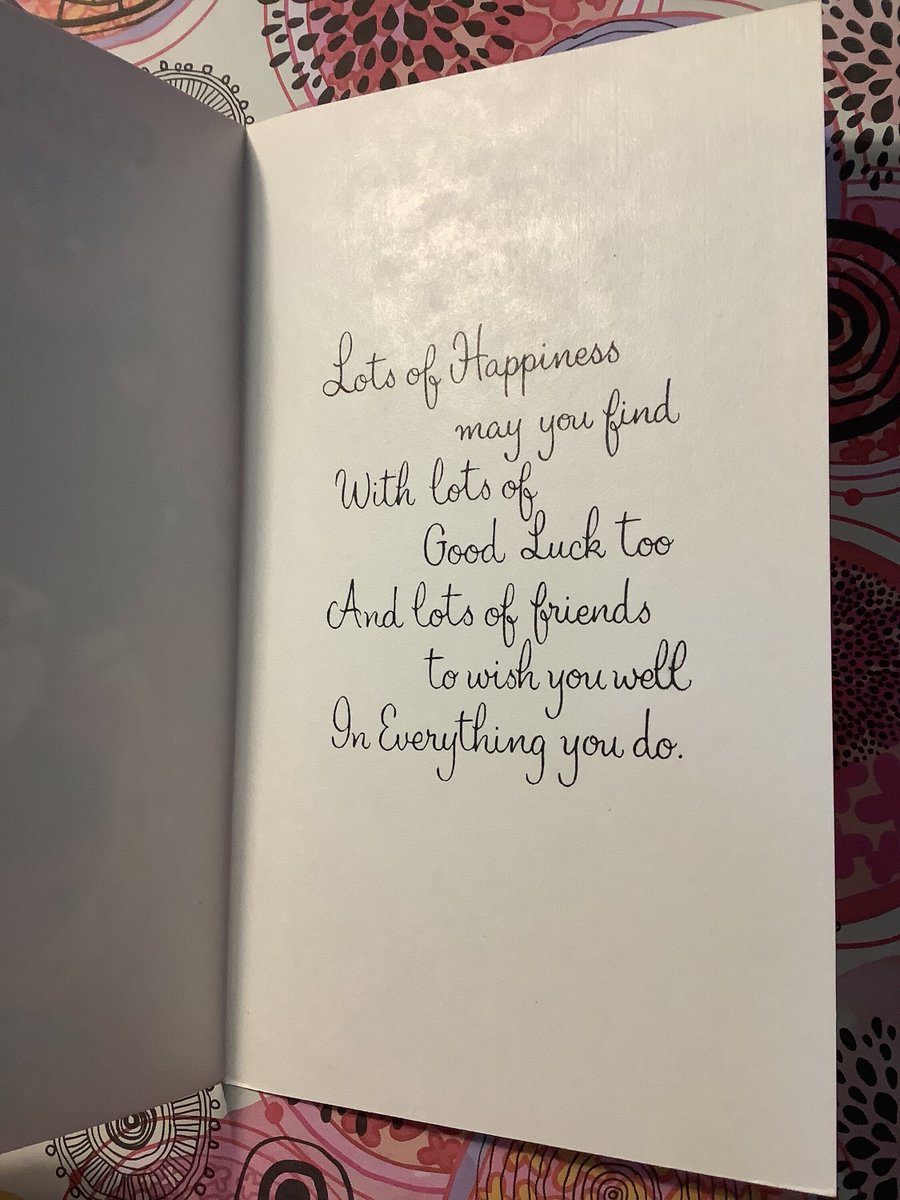 Lots of Happiness
may you find
With lots of
Good Luck too
And lots of friends
to wish you well
In Everything you do.